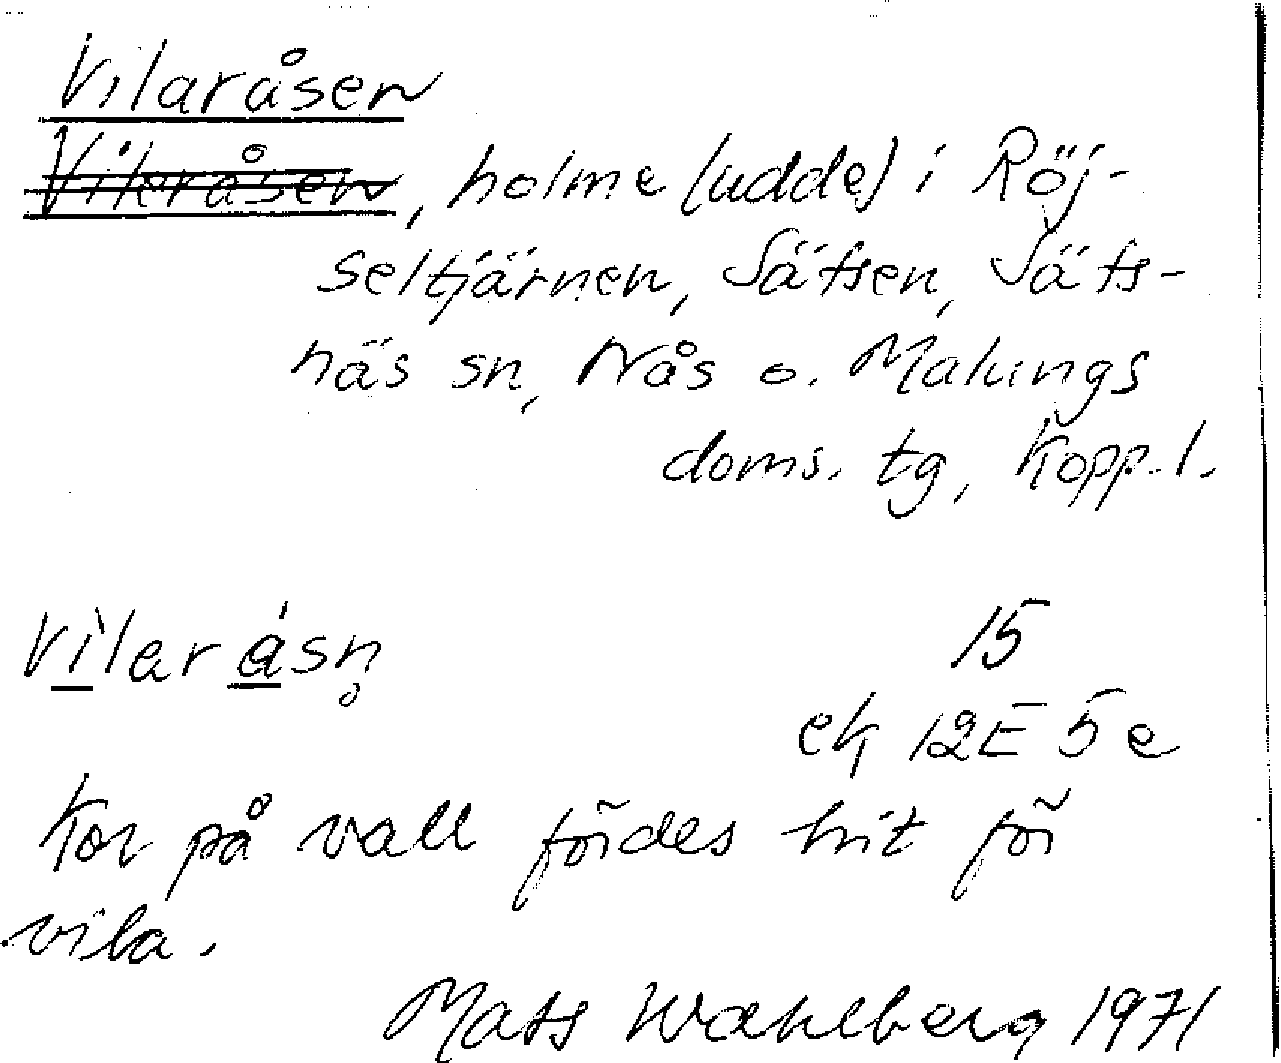 Vilaråsen
Vilaråsen, holme (udde) i Röj-
seltjärnen, Sätsen, Säfs-
näs sn, Nås o. Malungs
doms. tg, Kopp. l.
vìlaråsn̥ 15
ek 12E 5e
Kor på vall fördes hit för
vila.
Mats Wahlberg 1971